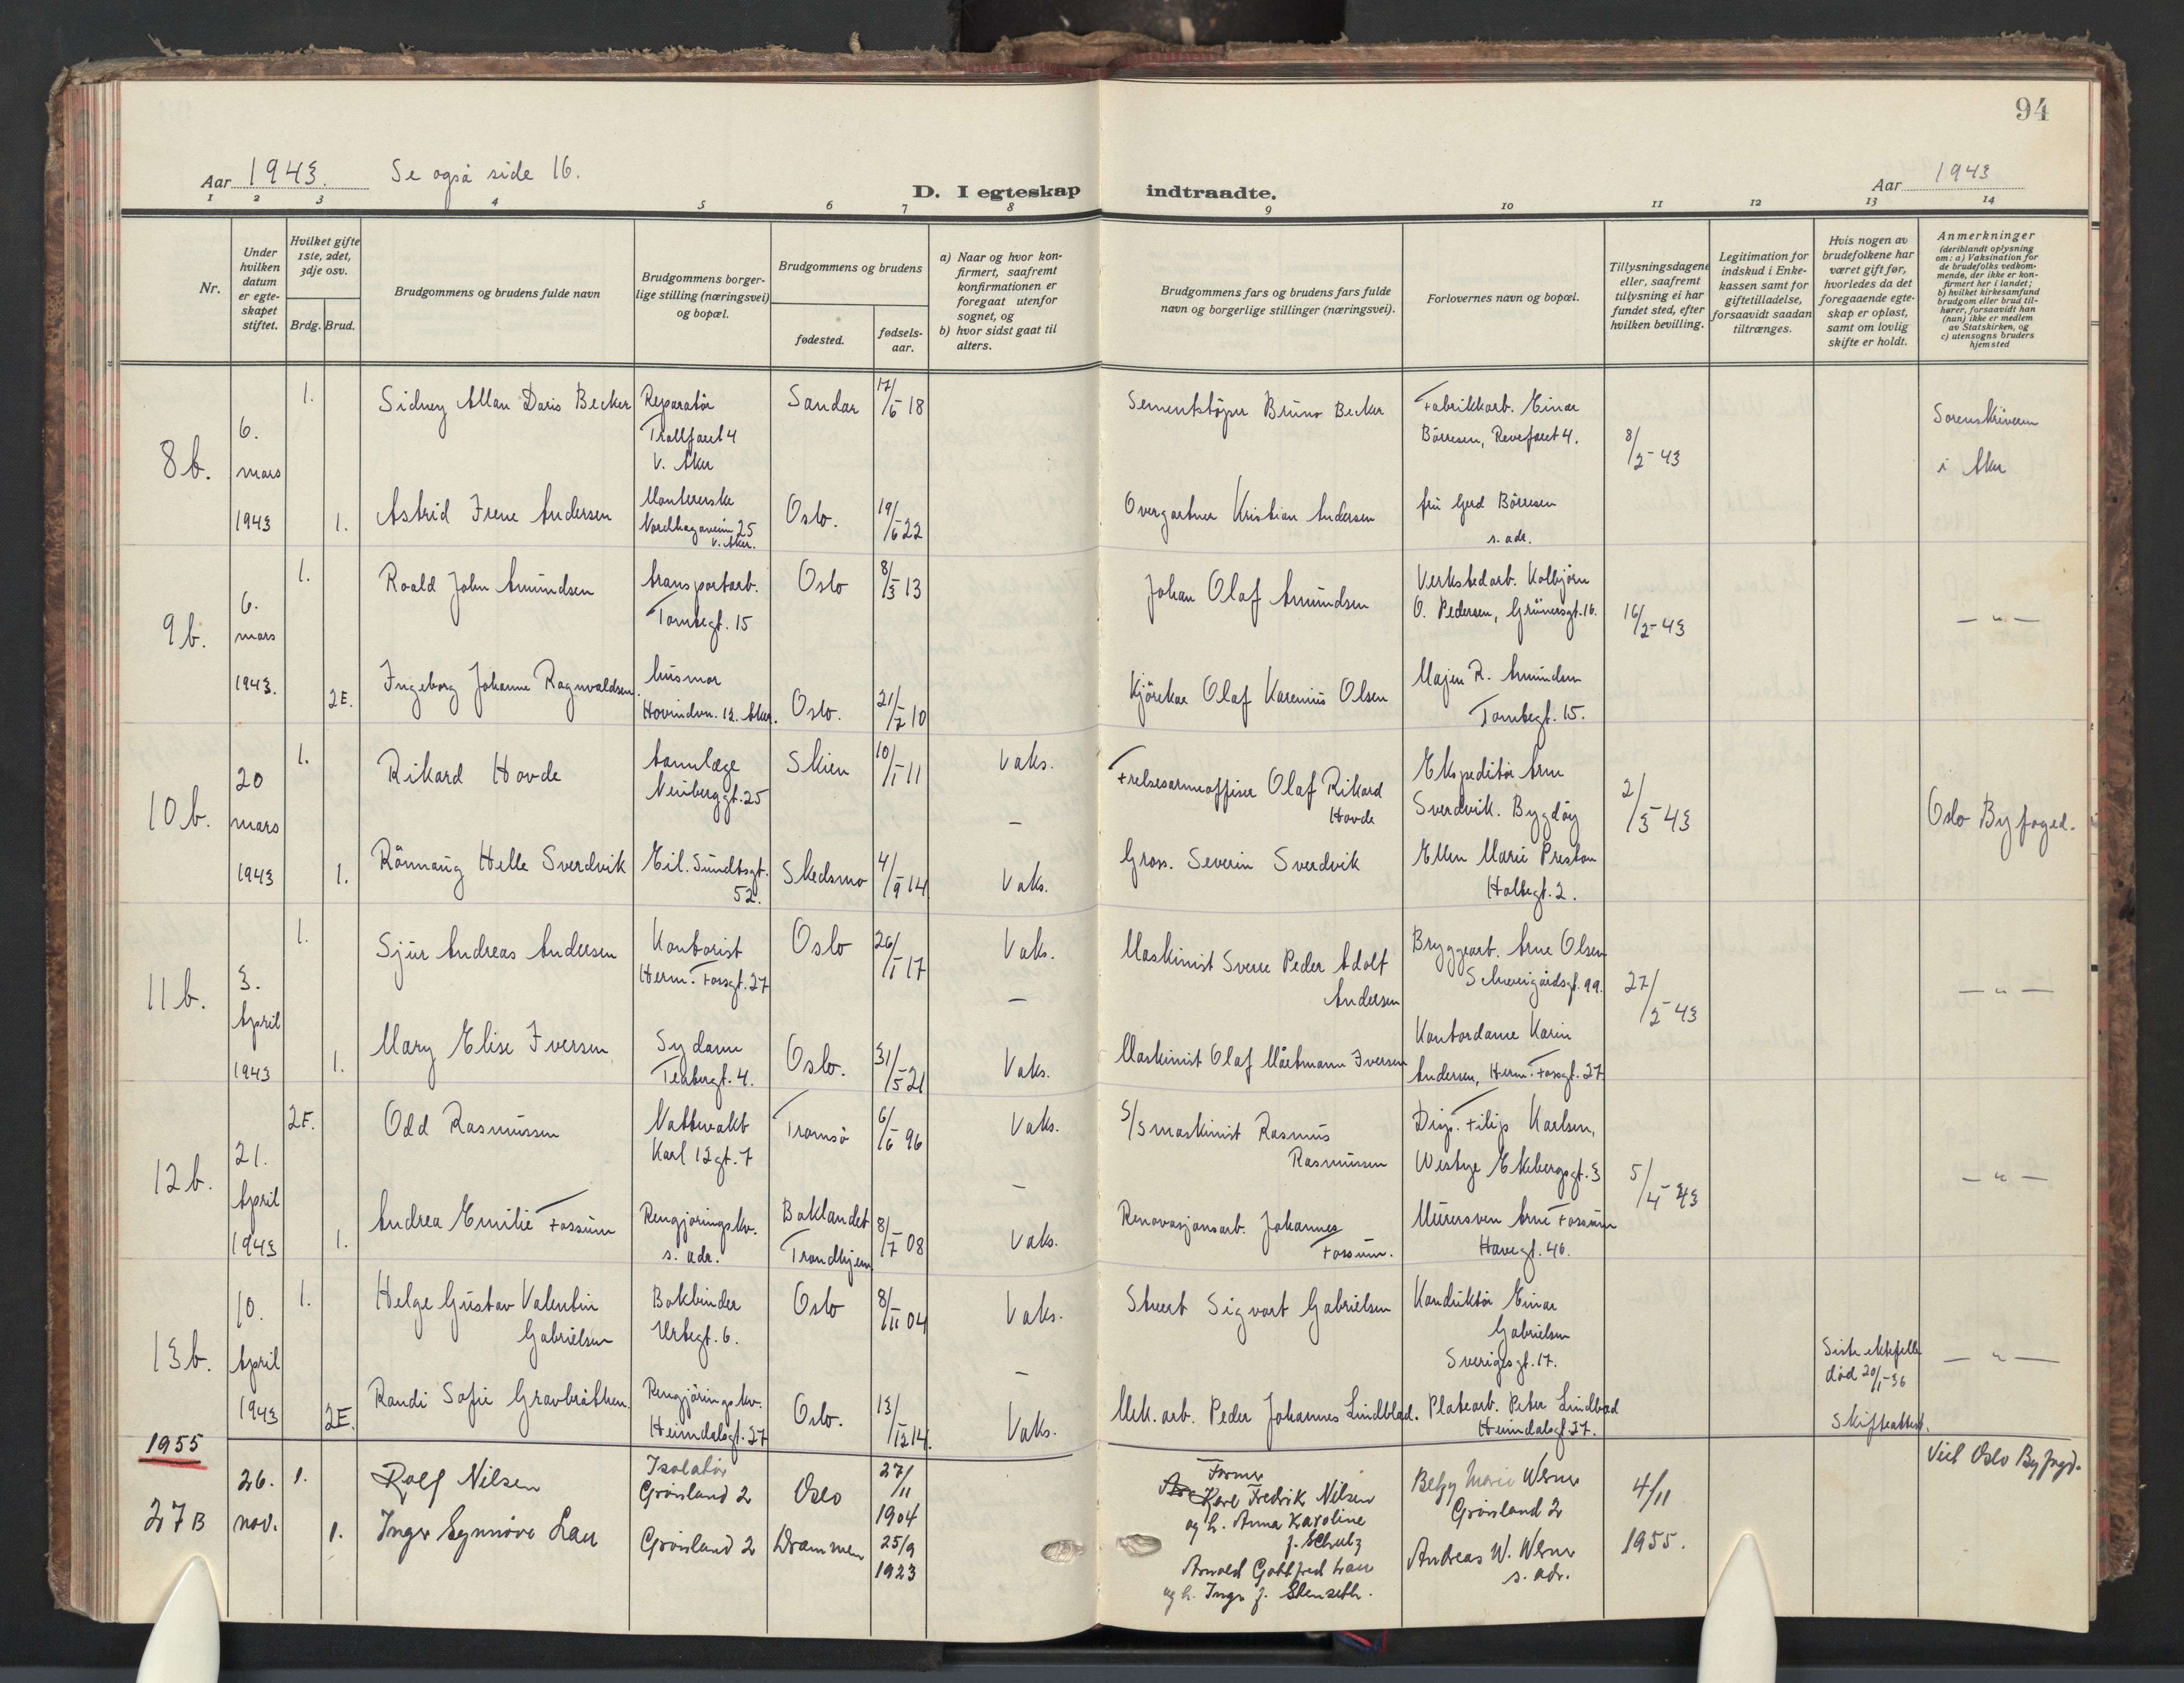 94
Aar 1943. Se også side 16.
D. I egteskap indtraadte.
Aar 1943
1 2 3 4 5 6 7 8 9 10 11 12 13 14
Nr.
Under hvilken datum er egteskapet stiftet.
Hvilket gifte 1ste, 2det, 3dje osv.
Brdg. Brud.
Brudgommens og brudens fulde navn
Brudgommens borgerlige stilling (næringsvei) og bopæl.
Brudgommens og brudens
fødested.
fødselsaar.
a) Naar og hvor konfirmert, saafremt konfirmationen er foregaat utenfor sognet, og
b) hvor sidst gaat til alters.
Brudgommens fars og brudens fars fulde navn og borgerlige stillinger (næringsvei).
Forlovernes navn og bopæl.
Tillysningsdagene eller, saafremt tillysning ei har fundet sted, efter hvilken bevilling.
Legitimation for indskud i Enkekassen samt for giftetilladelse, forsaavidt saadan tiltrænges.
Hvis nogen av brudefolkene har været gift før, hvorledes da det foregaaende egteskap er opløst, samt om lovlig skifte er holdt.
Anmerkninger
(deriblandt oplysning om: a) Vaksination for de brudefolks vedkommende, der ikke er konfirmert her i landet; b) hvilket kirkesamfund brudgom eller brud tilhører, forsaavidt han (hun) ikke er medlem av Statskirken, og c) utensogns bruders hjemsted
8b. 6. mars 1943
1. Sidney Allan Doris Becker Reparatör Trollfaret 4 V. Aker Sandar 17/5 18 Sementstöper Bruno Becker Fabrikkarb. Einar Börresen, Revefaret 4. 8/2-43 Sorenskriveren i Aker
1. Astrid Irene Andersen Montererske Nordhagaveien 25 V. Aker. Oslo. 19/6 22 Overgartner Kristian Andersen fru Gerd Börresen s. adr.
9b. 6. mars 1943.
1. Roald John Amundsen transportarb. Tornbegt. 15 Oslo 8/3 13 Johan Olaf Amundsen Verkstedarb. Kolbjørn O. Pedersen, Grünersgt. 16. 16/2-43 — " —
2E. Ingeborg Johanne Ragnvaldsen. husmor Hovindvn. 12. Aker. Oslo. 21/7 10 Kjörekar Olaf Karenius Olsen Majen R. Amundsen Tornbegt. 15.
10b. 20 mars 1943
1. Rikard Hovde tannlæge Neuberggt. 25 Skien 10/1 11 Vaks. Frelsesarmeoffiser Olaf Rikard Hovde Ekspeditör Arne Sverdvik. Bygdöy 2/3-43 Oslo Byfoged.
—
1. Rönnaug Helle Sverdvik Eil. Sundtsgt. 52. Skedsmo 4/9 14 Vaks. Gross. Severin Sverdvik Ellen Marie Preston Holbegt. 2.
11b. 3. April 1943
1. Sjur Andreas Andersen Kontorist Herm. Fossgt. 27 Oslo 26/1 17 Vaks. Maskinist Sverre Peder Adolf Andersen Bryggearb. Arne Olsen Schweigårdsgt. 99. 27/2-43 — " —
—
1. Mary Elise Iversen Sydame Tearbergt. 4. Oslo. 31/5 21 Vaks. Maskinist Olaf Mårtmann Iversen Kontordame Karin Andersen, Herm. Fossgt. 27
12b. 21. April 1943
2E. Odd Rasmussen Nattevakt Karl 12gt. 7 Tromsö 6/6 96 Vaks. S/S maskinist Rasmus Rasmussen Disp. Filip Karlsen, Westye Ekebergsgt. 3 5/4-43 — " —
—
1. Andrea Emilie Fossum Rengjöringskv. s. adr. Baklandet Trondhjem 8/7 08 Vaks. Renovasjonsarb. Johannes Fossum. Murersven Arne Fossum Havegt. 46.
13b. 10. April 1943
1. Helge Gustav Valentin Gabrielsen Bokbinder Urtegt. 6. Oslo 8/11 04 Vaks. Stuert Sigvart Gabrielsen Konduktör Einar Gabrielsen Sverigesgt. 17. — " —
—
2E. Randi Sofie Gravbråthen. Rengjöringskv. Heimdalsgt. 27 Oslo. 13/12 14. Vaks. Mek. arb. Peder Johannes Lindblad. Platearb. Peter Lindblad Heimdalsgt. 27. Siste ektefelle död 20/1-36 Skifteattest.
1955
27B 26. nov.
1. Rolf Nilsen Isolatör Grønland 2 Oslo 27/11 1904 Former Karl Fredrik Nilsen og h. Anna Karoline f. Schulz Betzy Marie Werner Grønland 2 4/11 1955. Viet Oslo Byfogd.
1. Inger Synnøve Lau Grønland 2 Drammen 25/9 1923 Arnold Gottfred Lau og h. Inga f. Stenseth. Andreas W. Werner s. adr.